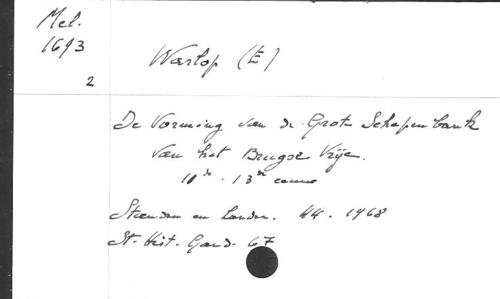 Mel.
1693
2
Warlop (E)
De Vorming van de Grote Schepenbank
van het Brugse Vrije.
11de - 13de eeuw
Standen en Landen. 44. 1968
St. Hist. Gand. 67